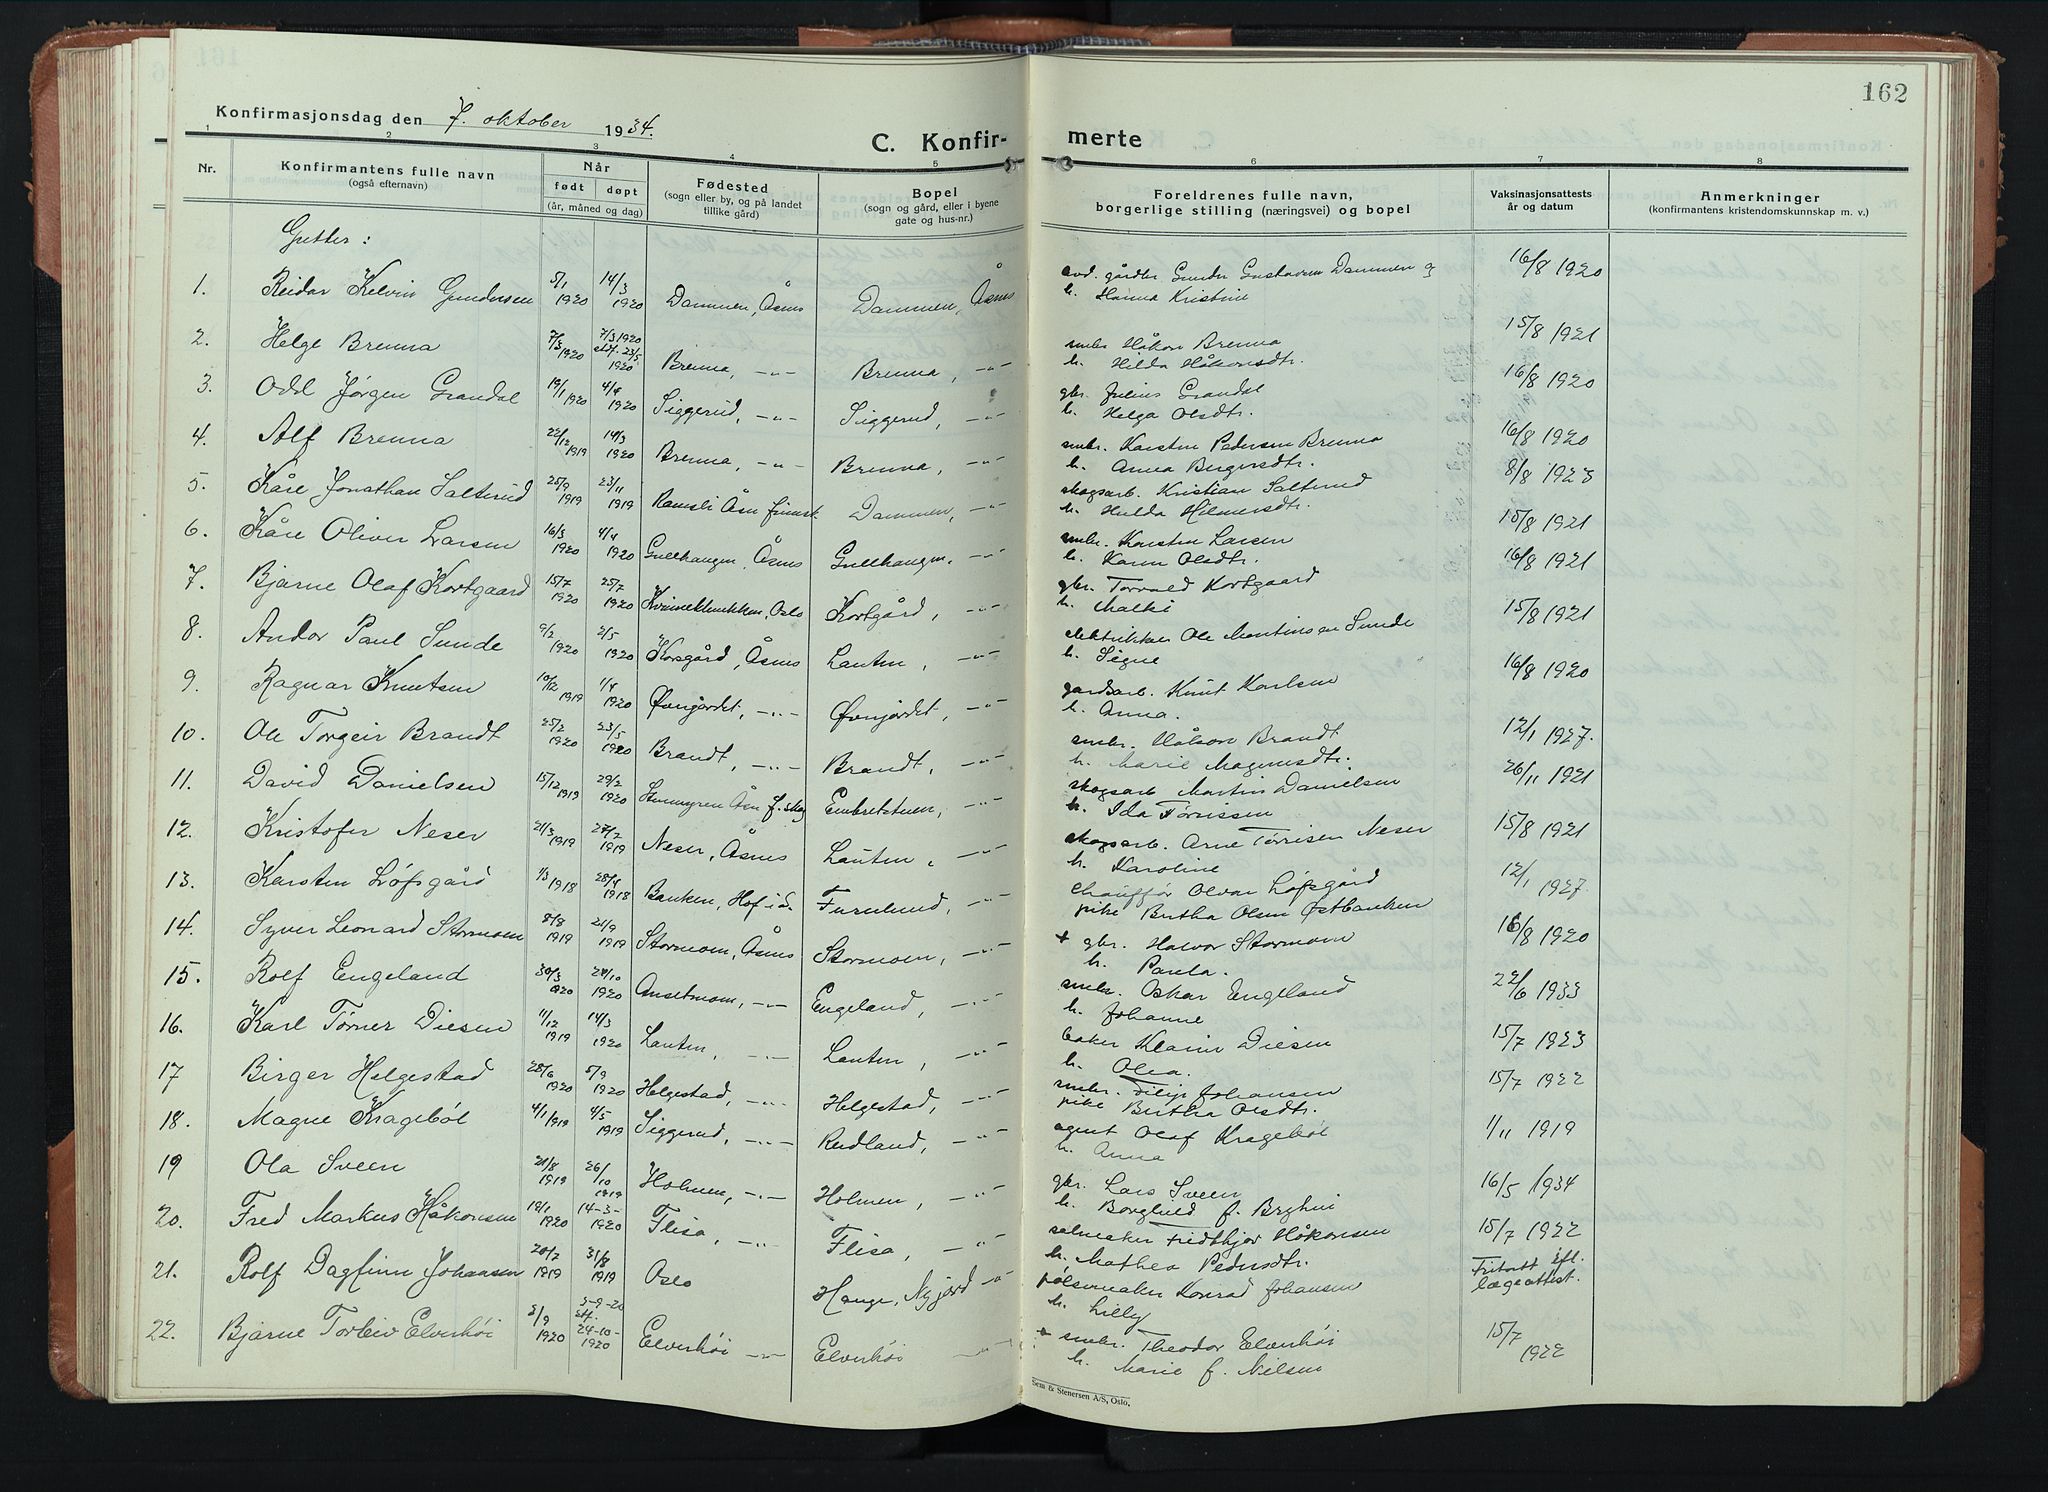 162
Konfirmasjonsdag den 7. oktober 1934.
C. Konfirmerte
1 2 3 4 5 6 7 8
Nr.
Konfirmantens fulle navn
(også efternavn)
Når
født døpt
(år, måned og dag)
Fødested
(sogn eller by, og på landet
tillike gård)
Bopel
(sogn og gård, eller i byene
gate og hus-nr.)
Foreldrenes fulle navn,
borgerlige stilling (næringsvei) og bopel
Vaksinasjonsattests
år og datum
Anmerkninger
(konfirmantens kristendomskunnskap m. v.)
Gutter:
1. Reidar Kelvin Gundersen 5/1 1920 14/3 1920 Dammen, Åsnes Dammen, Åsnes gårdbr. Gunder Gustavsen Dammen og h. Hanna Kristine 16/8 1920
2. Helge Brenna 7/3 1920 7/3 1920 stf. 23/5 1920 Brenna, -"- Brenna, -"- smbr. Håkon Brenna h. Hilda Håkonsdtr. 15/8 1921
3. Odd Jørgen Grandal 19/1 1920 4/4 1920 Siggerud, -"- Siggerud, -"- gbr. Julius Grandal h. Helga Olsdtr. 16/8 1920
4. Alf Brenna 22/12 1919 14/3 1920 Brenna, -"- Brenna, -"- smbr. Karsten Pedersen Brenna h. Anna Bergersdtr. 16/8 1920
5. Kåre Jonathan Salterud 25/9 1919 23/11 1919 Ramsli Åsn. finnsk. Dammen, -"- skogsarb. Kristian Salterud h. Hulda Hilmersdtr. 8/8 1923
6. Kåre Oliver Larsen 16/3 1920 4/4 1920 Gullhaugen, Åsnes Gullhaugen, -"- smbr. Karsten Larsen h. Karen Olsdtr. 15/8 1921
7. Bjarne Olaf Kortgaard 15/7 1920 25/7 1920 Kvinneklinikken, Oslo Kortgård, -"- gbr. Torvald Kortgaard h. Malki 16/8 1921
8. Andor Paul Sunde 9/2 1920 2/5 1920 Korsgård, Åsnes Lauten, -"- elektriker Ole Martinsen Sunde h. Signe 15/8 1921
9. Ragnar Knutsen 10/12 1919 1/4 1920 Øvrijordet, -"- Øvrijordet, -"- gårdsarb. Knut Karlsen h. Anna. 16/8 1920
10. Ole Torgeir Brandt 25/2 1920 23/5 1920 Brandt, -"- Brandt, -"- smbr. Håkon Brandt h. Marie Magnusdtr. 12/1 1927.
11. David Danielsen 15/12 1919 29/2 1920 Stenmyren Åsn. f. skog Embretstuen, skogsarb. Martin Danielsen h. Ida Tørrissen 26/11 1921
12. Kristofer Neser 21/3 1919 27/2 1919 Neser, Åsnes Lauten, -"- skogsarb. Arne Tørrisen Neser h. Karoline 15/8 1921
13. Karsten Løfsgård 1/3 1918 28/4 1918 Banken, Hof i S. Furulund, -"- chauffør Olvar Løfsgård pike Bertha Olsen Østbanken 12/1 1927.
14. Syver Leonard Stormoen 8/8 1919 21/9 1919 Stormoen, Åsnes Stormoen, -"- + gbr. Halvor Stormoen h. Paula. 16/8 1920
15. Rolf Engeland 30/3 1920 24/10 1920 Ansetmoen, -"- Engeland, -"- smbr. Oskar Engeland h. Johanne 22/6 1933
16. Karl Tørner Diesen 11/12 1919 14/3 1920 Lauten, -"- Lauten, -"- baker Klarin Diesen h. Olea. 15/7 1923
17 Birger Helgestad 28/6 1920 5/9 1920 Helgestad, -"- Helgestad, -"- smbr. Filip Johansen pike Bertha Olsdtr. 15/7 1922
18. Magne Kragebøl 4/1 1919 4/5 1919 Siggerud, -"- Rudland, -"- agent Olaf Kragebøl h. Anna 1/11 1919
19 Ola Sveen 21/8 1919 26/10 1919 Holmen, -"- Holmen, -"- gbr. Lars Sveen h. Borghild f. Berghui 16/5 1934
20. Fred Markus Håkonsen 19/1 1920 14-3-1920 Flisa, -"- Flisa, -"- salmaker Fridthjov Håkonsen h. Mathea Pedersdtr. 15/7 1922
21. Rolf Dagfinn Johansen 20/2 1919 31/8 1919 Oslo Hauge, Nyjord -"- pølsemaker Konrad Johansen h. Lilly Fritatt efl. lægeattest.
22. Bjarne Torleiv Elverhøi 3/9 1920 3-9-20 stf. 24-10-1920 Elverhøi -"- Elverhøi -"- + smbr. Theodor Elverhøi h. Marie f. Nilsen 15/7 1922
Sem & Stenersen A/S, Oslo.